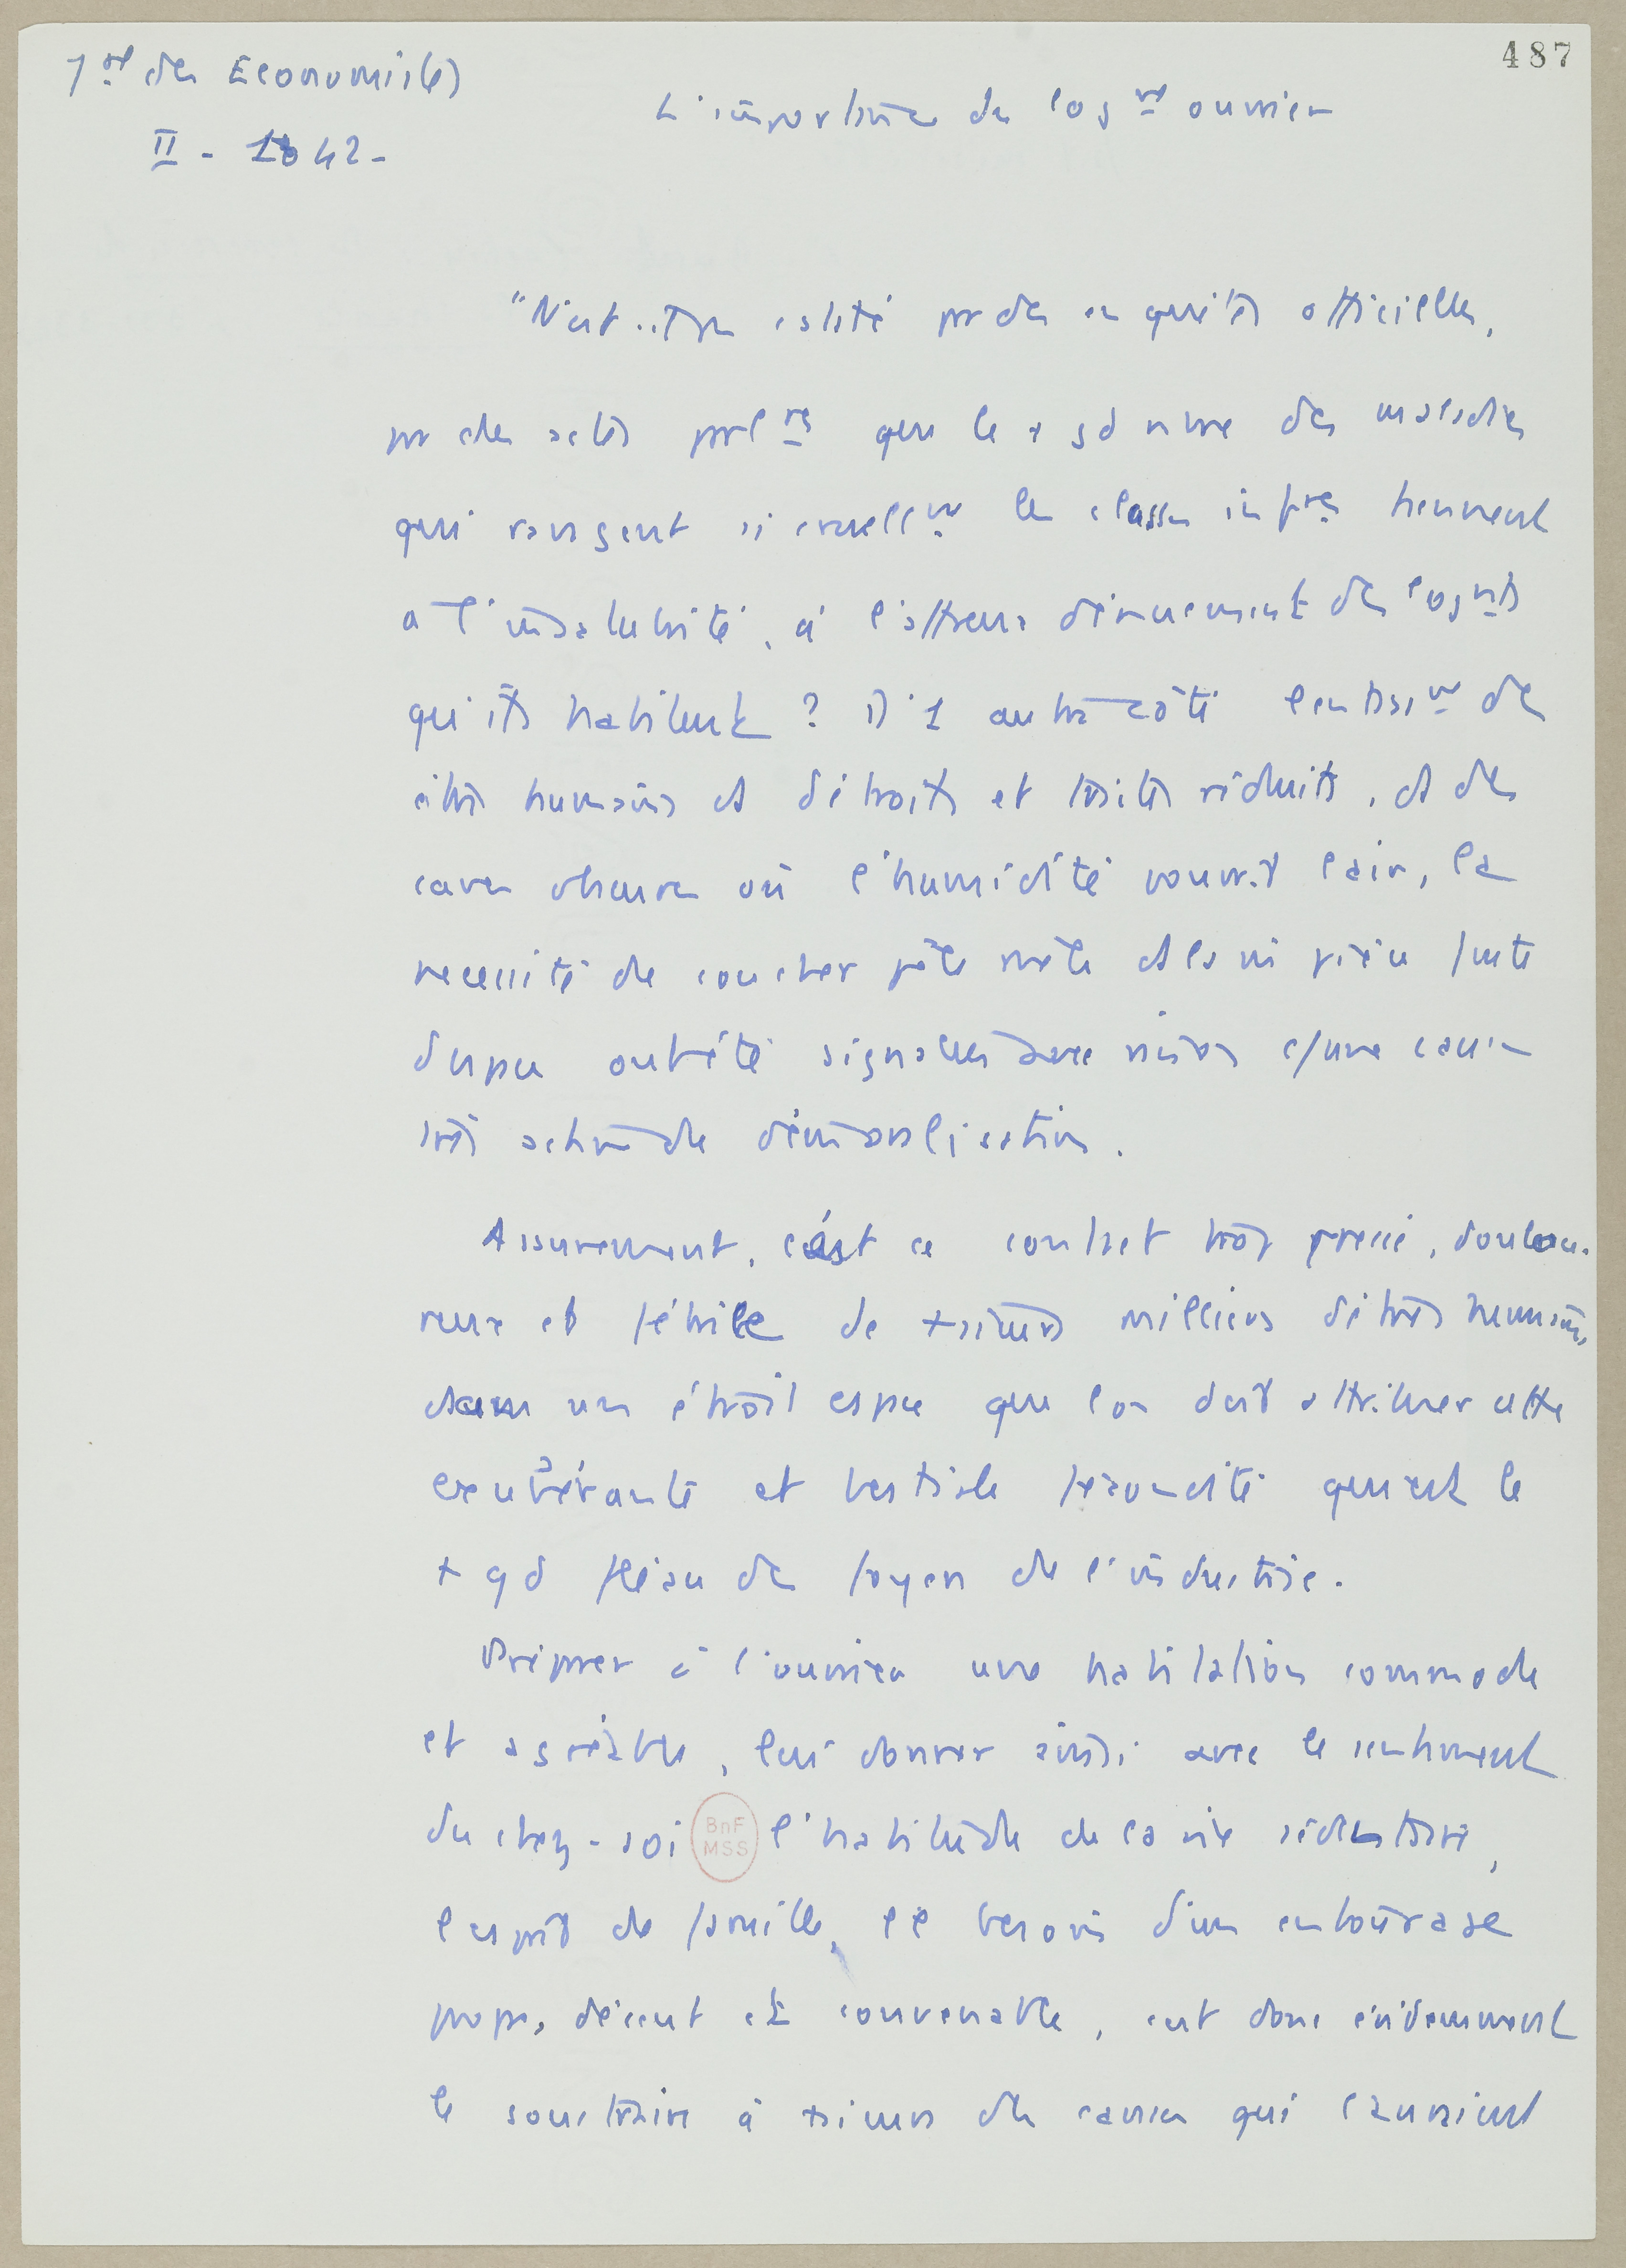 487
Jal des Economis(te)
II - 1842 -
L'importance du logmt ouvrier
"N'est-il pas constaté par des enquêtes officielles,
par des actes parlres que le + gd nbre des maladies
qui ravagent si cruellmt les classes infres tiennent
à l'insalubrité, à l'affreux dénuement des logmts
qu'ils habitent ? D'1 autre côté l'entassmt des
êtres humains ds d'étroits et tristes réduits, ds des
caves obscures où l'humidité pourrit l'air, la
nécessité de coucher pêle mêle ds la m pièce faute
d'espace ont été signalées avec raison c/une cause
très active de démoralisation.
Assurément, c'est ce contact trop pressé, doulou-
reux et fébrile de + sieurs milliers d'êtres humains,
dans un étroit espace que l'on doit attribuer cette
exubérante et bestiale fécondité qui est le
+ gd fléau des foyers de l'industrie.
Préparer à l'ouvrier une habitation commode
et agréable, lui donner ainsi avec le sentiment
du chez-soi l'habitude de la vie sédentaire,
l'esprit de famille, le besoin d'un entourage
propre, décent et convenable, c'est donc évidemment
le soustraire à + sieurs des causes qui
BnF
MSS